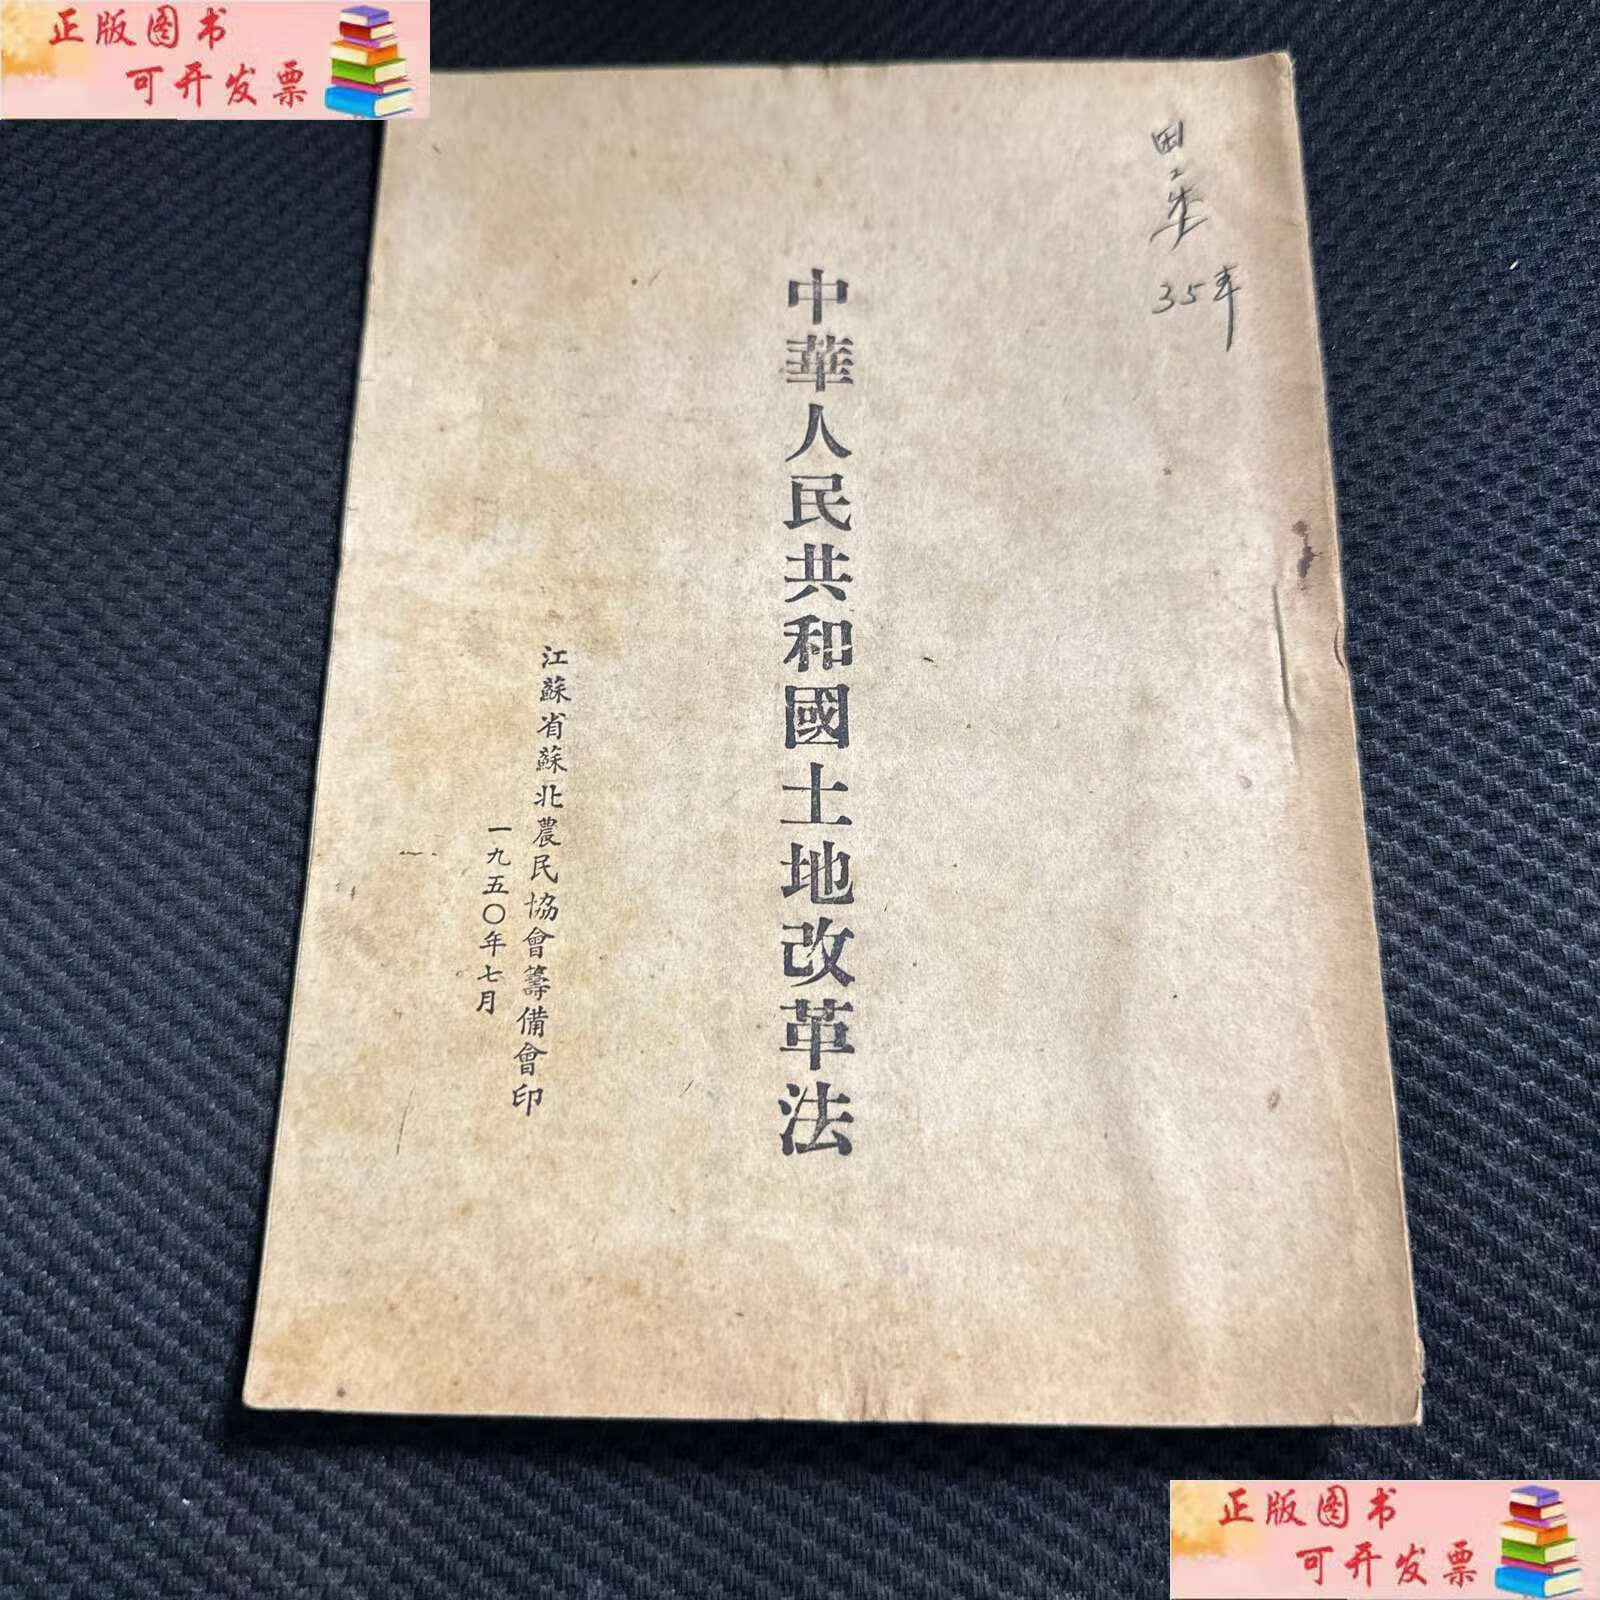 正版图书
可开发票
35年
中華人民共和國土地改革法
江蘇省蘇北農民協會籌備會印
一九五〇年七月
正版图书
可开发票